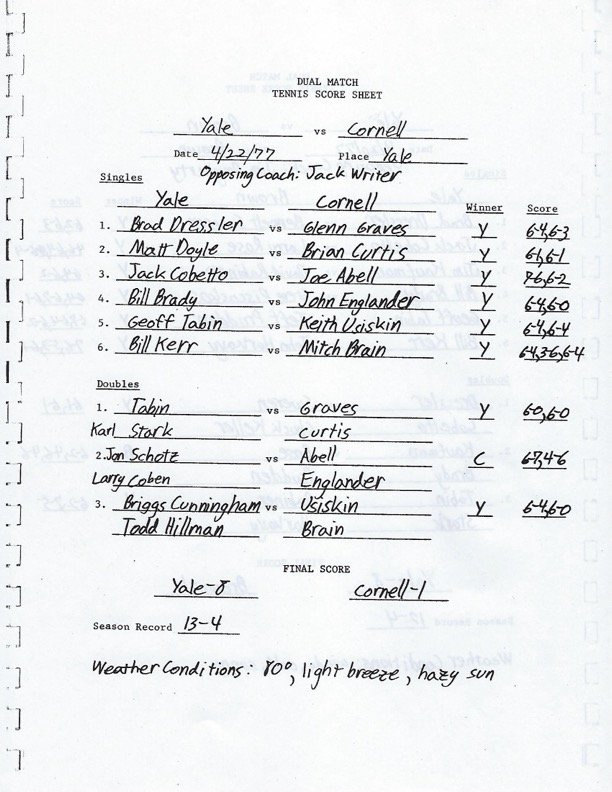 DUAL MATCH
TENNIS SCORE SHEET
Yale vs Cornell
Date 4/22/77 Place Yale
Opposing Coach: Jack Writer
Singles Yale Cornell Winner Score
1. Brad Dressler vs Glenn Graves Y 6-4,6-3
2. Matt Doyle vs Brian Curtis Y 6-1,6-1
3. Jack Cobetto vs Joe Abell Y 7-6,6-2
4. Bill Brady vs John Englander Y 6-4,6-0
5. Geoff Tabin vs Keith Usiskin Y 6-4,6-4
6. Bill Kerr vs Mitch Brain Y 6-4,3-6,6-4
Doubles
1. Tabin vs Graves Y 6-0,6-0
Karl Stark Curtis
2. Jon Schotz vs Abell C 6-7,4-6
Larry Coben Englander
3. Briggs Cunningham vs Usiskin Y 6-4,6-0
Todd Hillman Brain
FINAL SCORE
Yale-8 Cornell-1
Season Record 13-4
Weather Conditions: 80°, light breeze, hazy sun